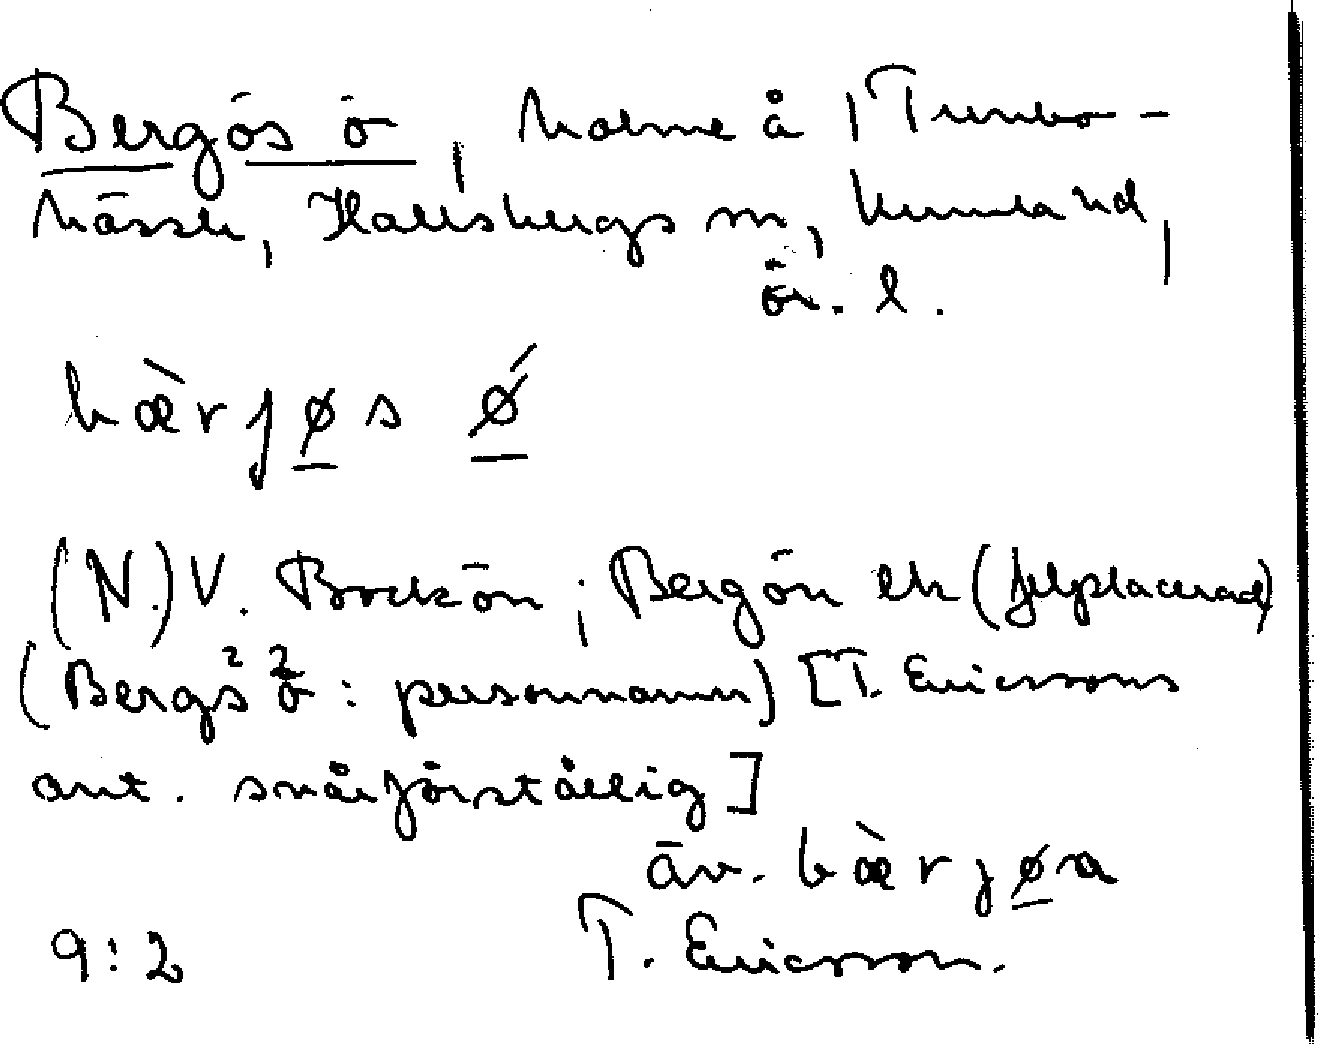 Bergös ö, holme å Tunbo-
hässle, Hallsbergs sn, Kumla hd,
ör. l.
bæ̀rjøs ǿ
(N.) V. Bockön; Bergön ek (felplacerad)
(Bergs² ö²: personnamn) [T. Ericssons
ant. svårförståelig]
äv. bæ̀rjøna
9:2 T. Ericsson.